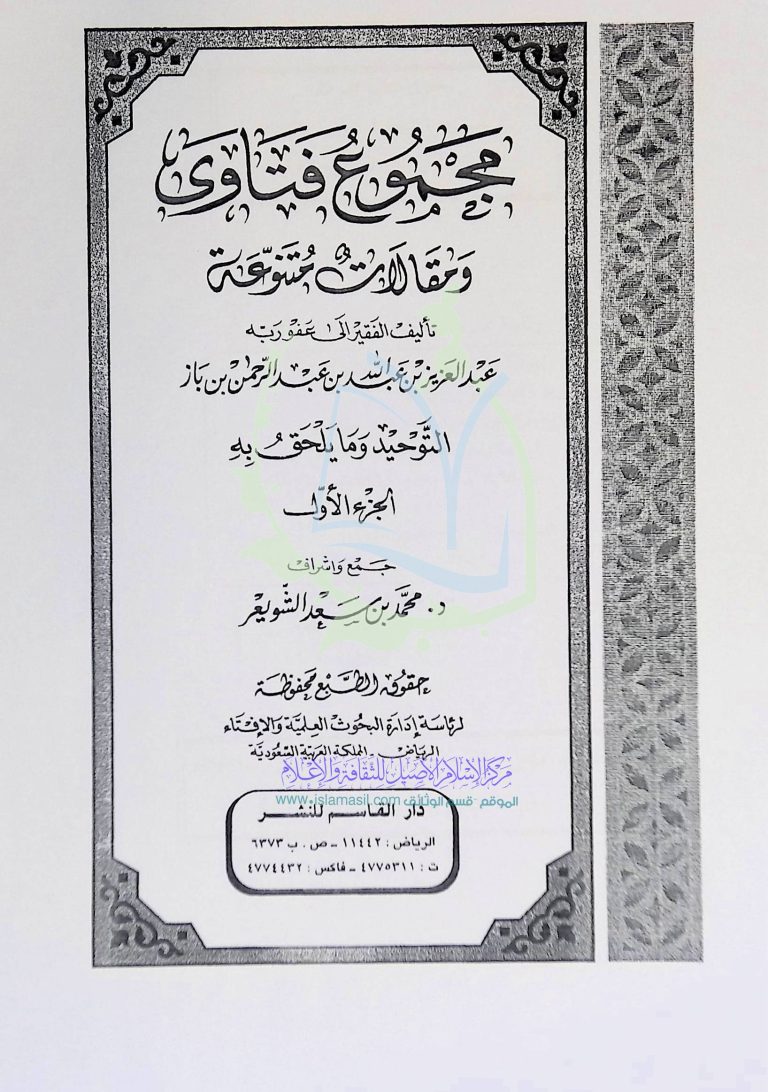 مَجْمُوعُ فَتَاوَى
وَمَقَالَاتٌ مُتَنَوِّعَة
تأليف الفقير إلى عفو ربه
عَبْد العَزِيز بْن عَبد الله بن عَبْد الرَّحمٰن بْن بَاز
التَّوْحِيْد وَمَا يَلْحَقُ بِهِ
الجزء الأوّل
جَمْع وَإشراف
د. محمّد بن سَعْد الشّويعر
حقوق الطّبْع محفوظَة
لرئاسة إدَارة البحوث العِلميَّة والإفتاء
الرياض - المملكة العربيّة السّعُوديّة
مركز الإسلام الأصيل للثقافة والإعلام
الموقع - قسم الوثائق www.islamasil.com
دار القاسم للنشر
الرياض : ١١٤٤٢ - ص . ب ٦٣٧٣
ت : ٤٧٧٥٣١١ - فاكس : ٤٧٧٤٤٣٢